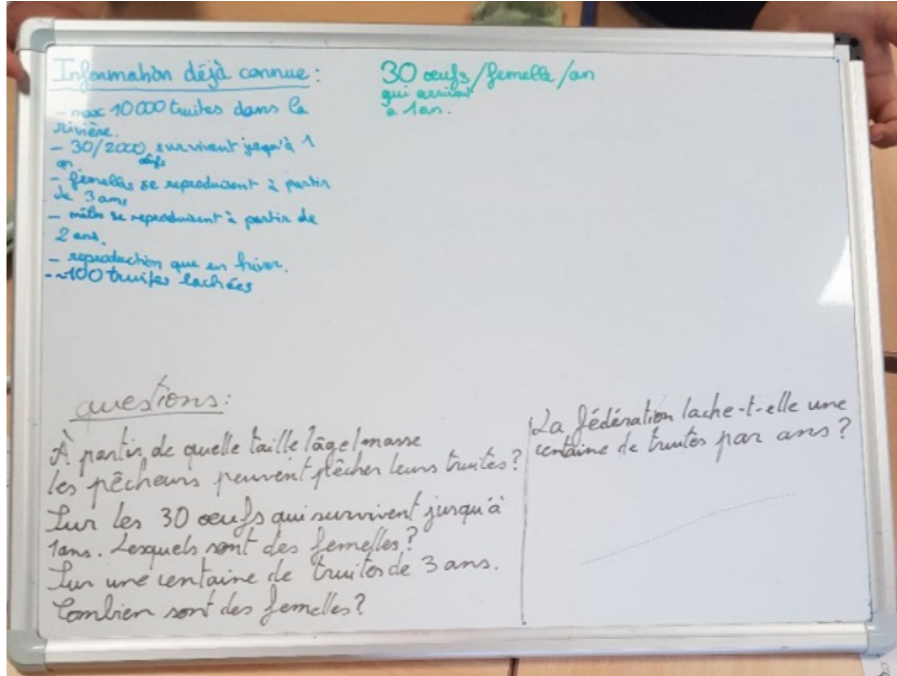 Information déjà connue :
- max 10 000 truites dans la
rivière.
- 30/2000 survivent jusqu'à 1
œufs
an
- femelles se reproduisent à partir
de 3 ans
- mâles se reproduisent à partir de
2 ans.
- reproduction que en hiver.
- ~100 truites lachées
30 œufs/femelle/an
qui arrivent
à 1 an.
questions :
À partir de quelle taille/âge/masse
les pêcheurs peuvent pêcher leurs truites ?
Sur les 30 oeufs qui survivent jusqu'à
1ans. Lesquels sont des femelles ?
Sur une centaine de truites de 3 ans.
Combien sont des femelles ?
La fédération lache-t-elle une
centaine de truites par ans ?